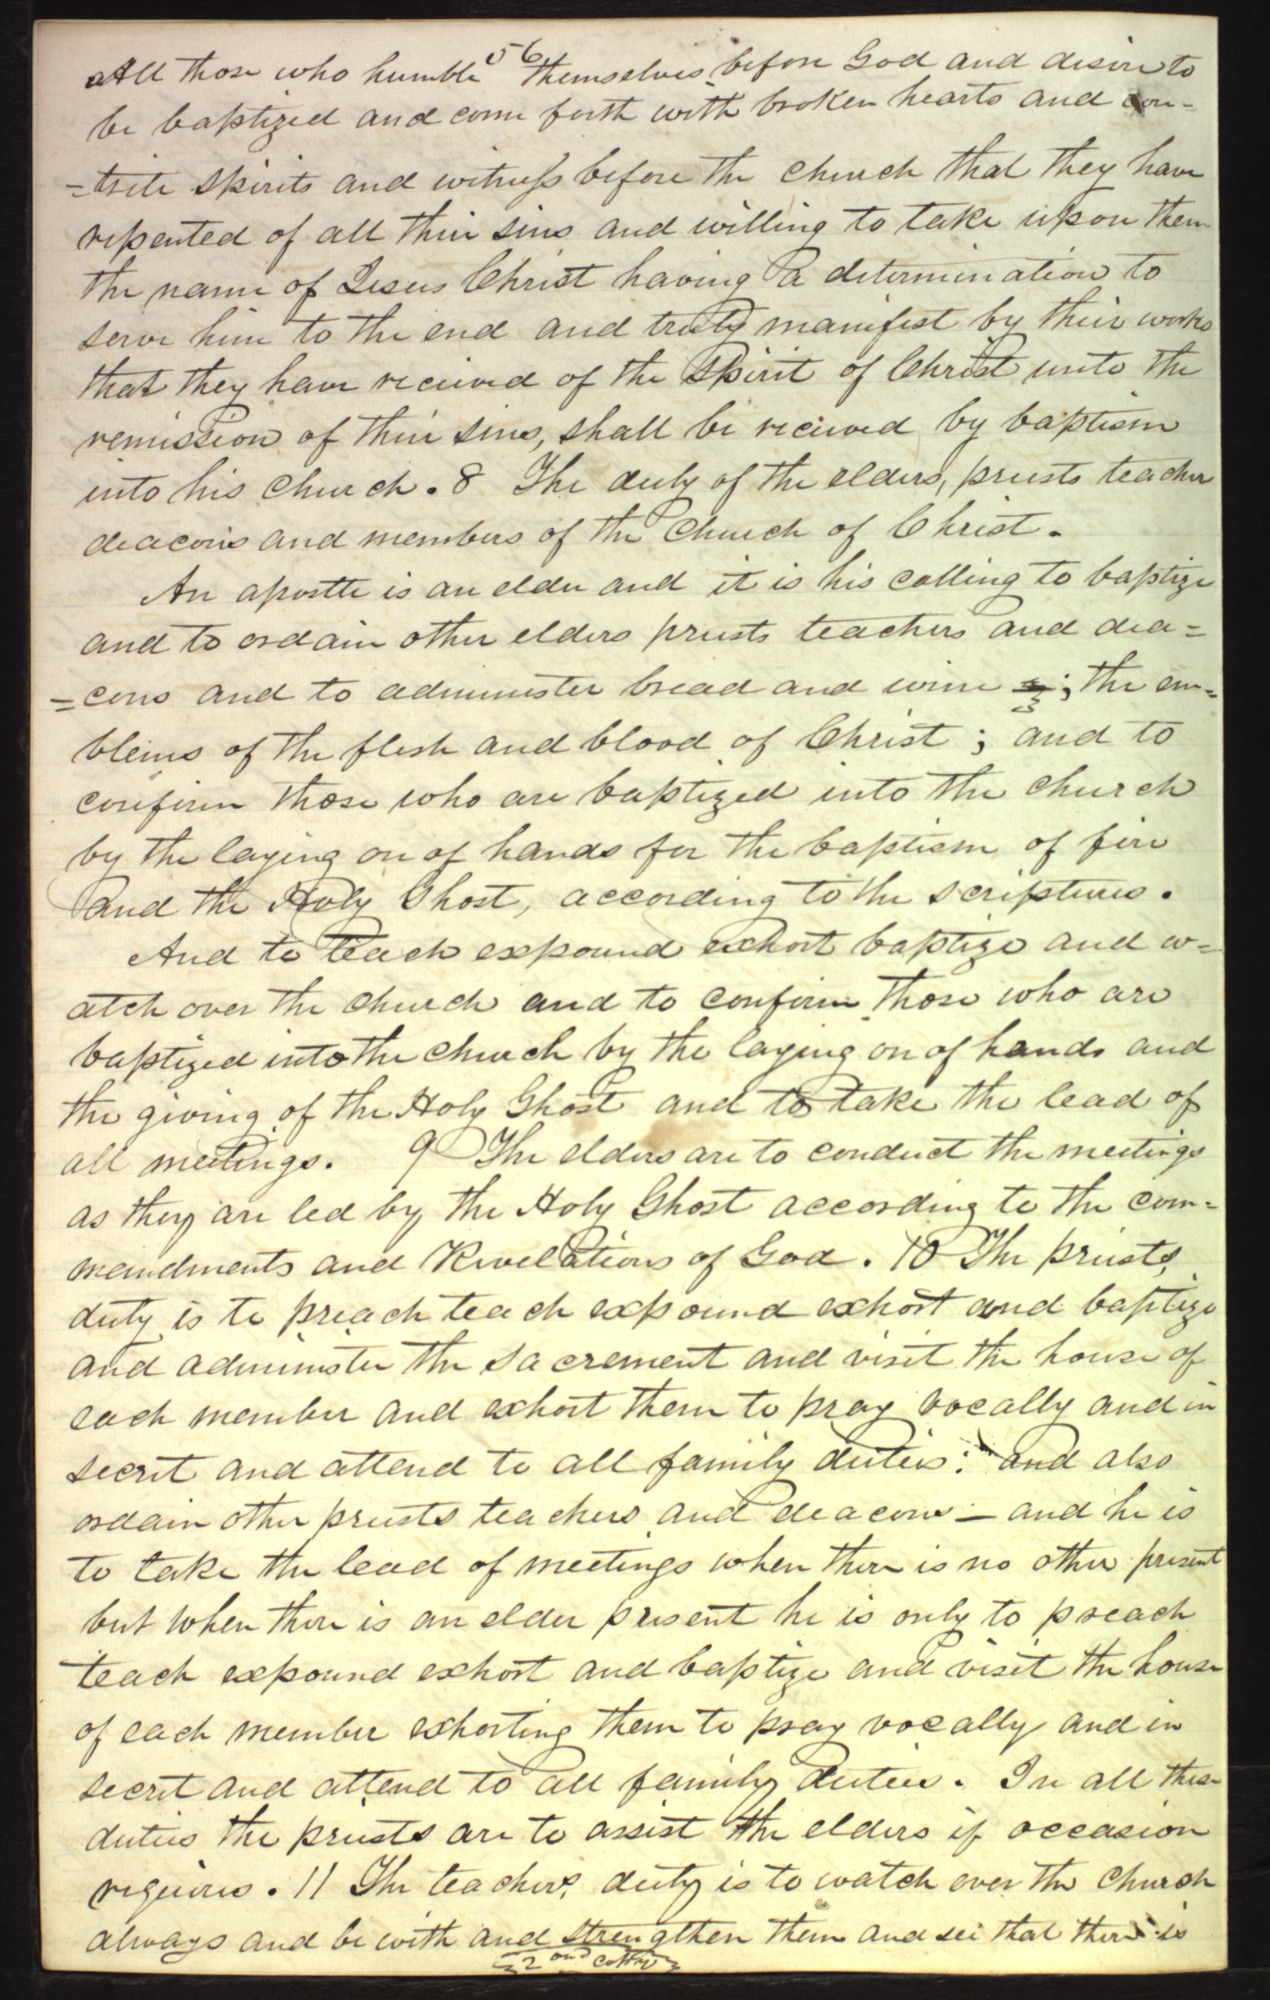 56
All those who humble themselves before God and desire to
be baptized and come forth with broken hearts and con-
=trite spirits and witness before the church that they have
repented of all their sins and willing to take upon them
the name of Jesus Christ having a determination to
serve him to the end and truly manifest by their works
that they have received of the spirit of Christ unto the
remission of their sins, shall be received by baptism
into his church. 8 The duty of the elders, priests teacher
deacons and members of the church of Christ.
An apostle is an elder and it is his calling to baptize
and to ordain other elders priests teachers and dea=
=cons and to administer bread and wine ; the em=
blems of the flesh and blood of Christ ; and to
confirm those who are baptized into the church
by the laying on of hands for the baptism of fire
and the Holy Ghost, according to the scriptures.
And to teach expound exhort baptize and w=
atch over the church and to confirm those who are
baptized into the church by the laying on of hands and
the giving of the Holy Ghost and to take the lead of
all meetings. 9 The elders are to conduct the meetings
as they are led by the Holy Ghost according to the com=
mandments and Revelations of God. 10 The priests,
duty is to preach teach expound exhort and baptize
and administer the sacrement and visit the house of
each member and exhort them to pray vocally and in
secret and attend to all family duties: and also
ordain other priests teachers and deacons — and he is
to take the lead of meetings when there is no other present
but when there is an elder present he is only to preach
teach expound exhort and baptize and visit the house
of each member exhorting them to pray vocally and in
secret and attend to all family duties. In all these
duties the priests are to assist the elders if occasion
requires. 11 The teachers, duty is to watch over the church
always and be with and strengthen them and see that there is
2nd